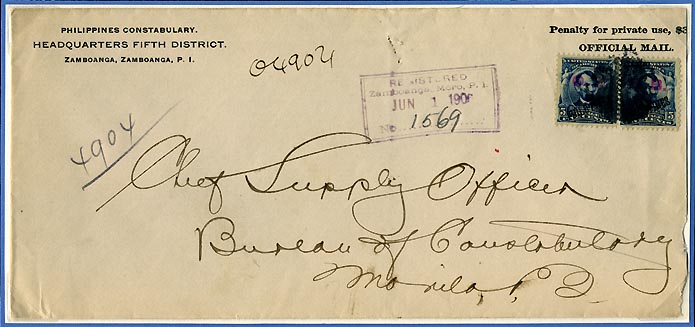 PHILIPPINES CONSTABULARY.
HEADQUARTERS FIFTH DISTRICT.
ZAMBOANGA, ZAMBOANGA, P. I.
Penalty for private use, $3
OFFICIAL MAIL.
04904
REGISTERED
Zamboanga, Moro, P. I.
JUN 1 1906
No. 1569
4904
Chef Supply Officer
Bureau of Constabulary
Manila, P. I.